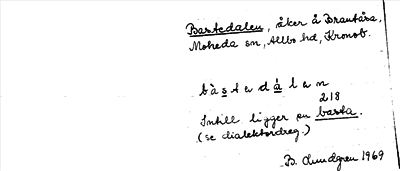 Bastedalen, åker å Brantåsa,
Moheda sn, Allbo hd, Kronob.
bàstedálen
218
Intill ligger en basta.
(se dialektordreg.)
B. Lundgren 1969